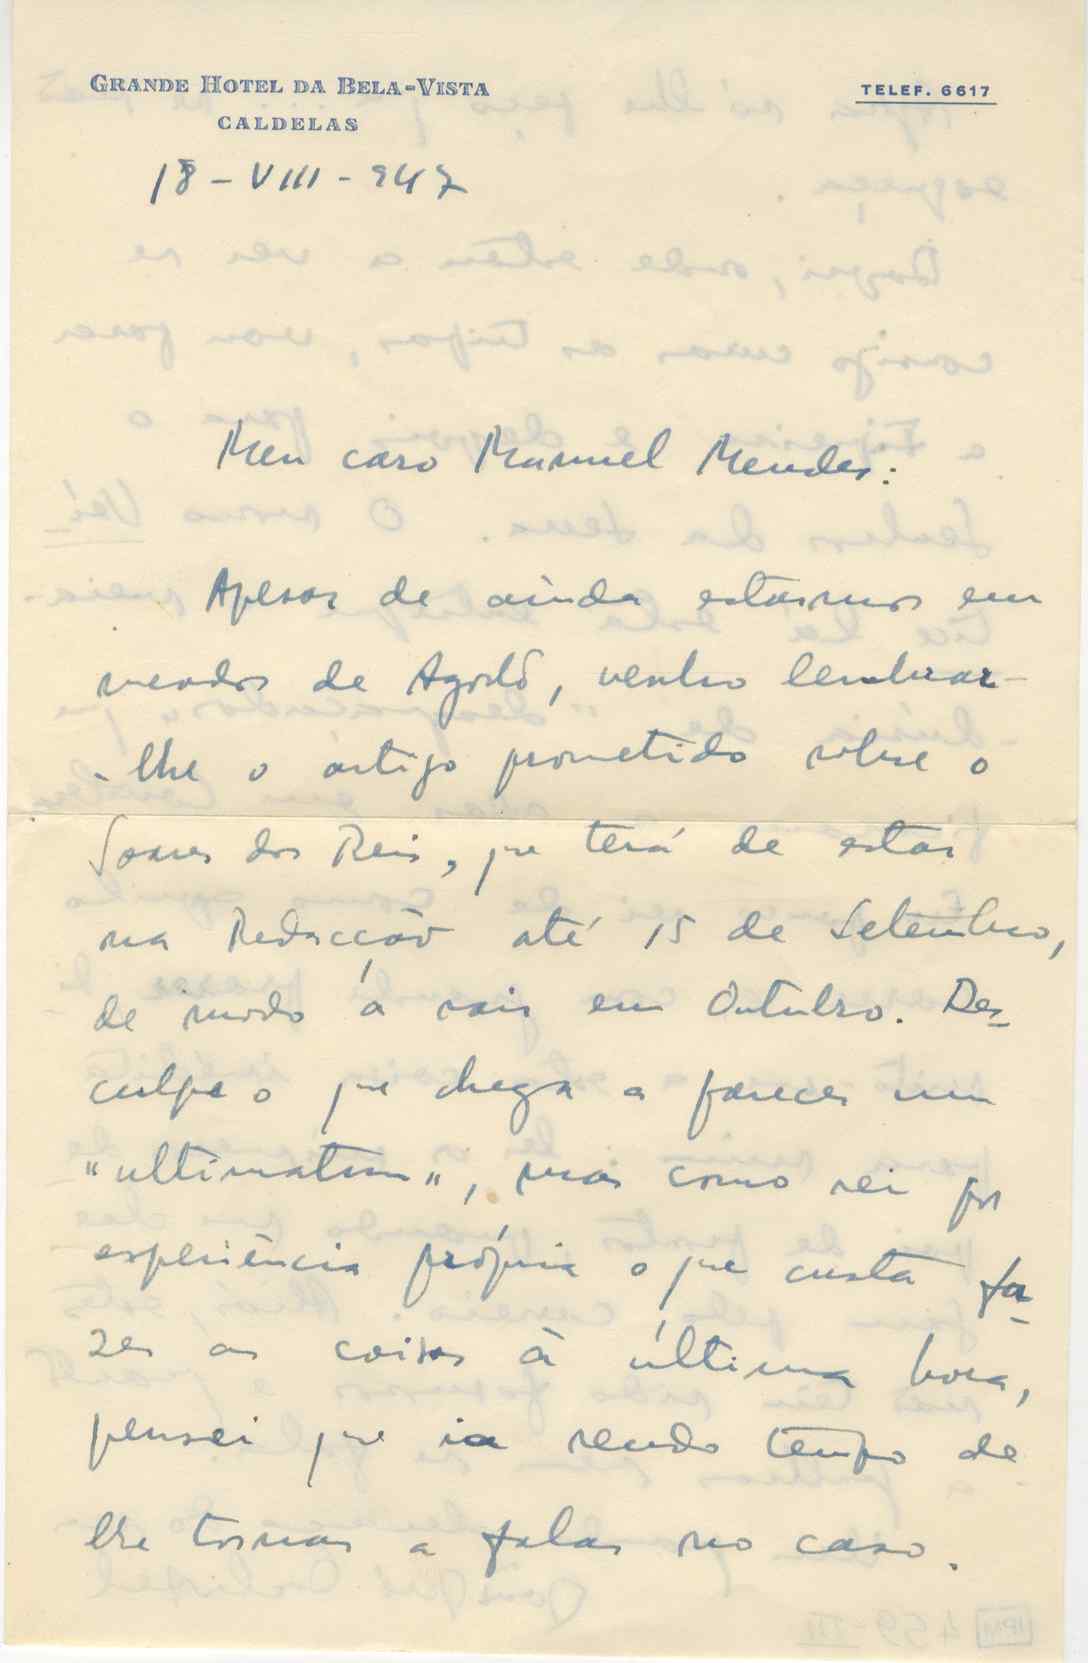 GRANDE HOTEL DA BELA-VISTA
CALDELAS
TELEF. 6617
18-VIII-947
Meu caro Manuel Mendes:
Apesar de ainda estarmos em
meados de Agosto, venho lembrar-
-lhe o artigo prometido sobre o
Soares dos Reis, que terá de estar
na Redacção até 15 de Setembro,
de modo a sair em Outubro. Des-
culpe o que chega a parecer um
"ultimatum", mas como sei por
experiência própria o que custa fa-
zer as coisas à última hora,
pensei que ia sendo tempo de
lhe tornar a falar no caso.